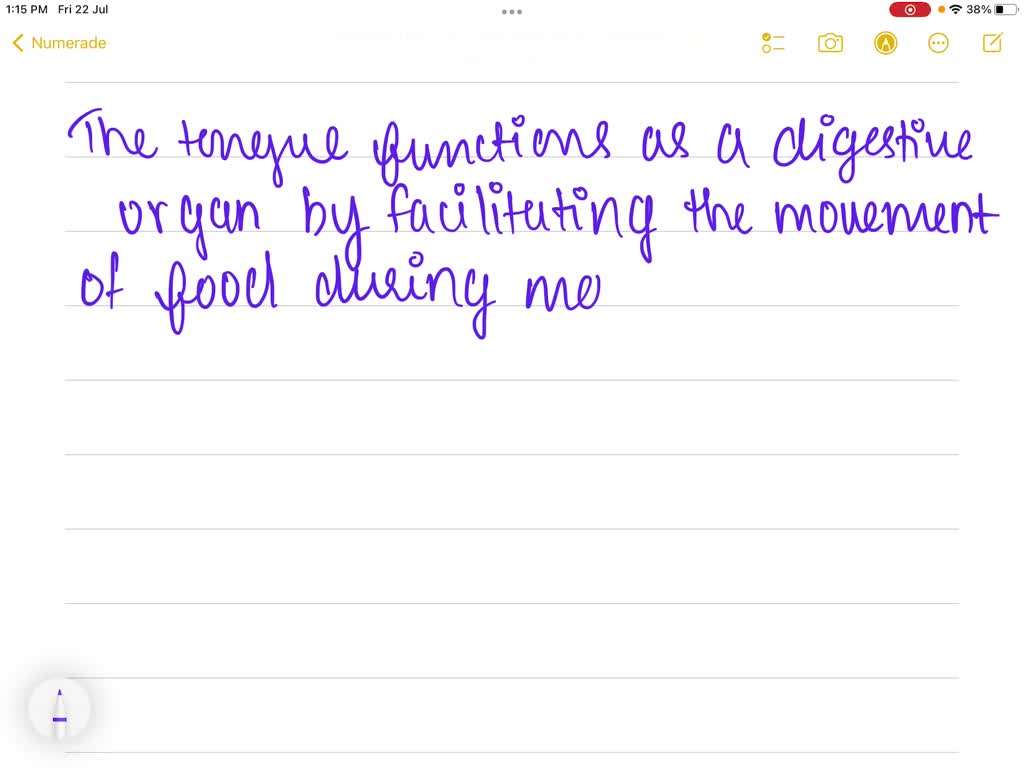 1:15 PM Fri 22 Jul
38%
Numerade
The tongue functions as a digestive
organ by facilitating the movement
of food during me